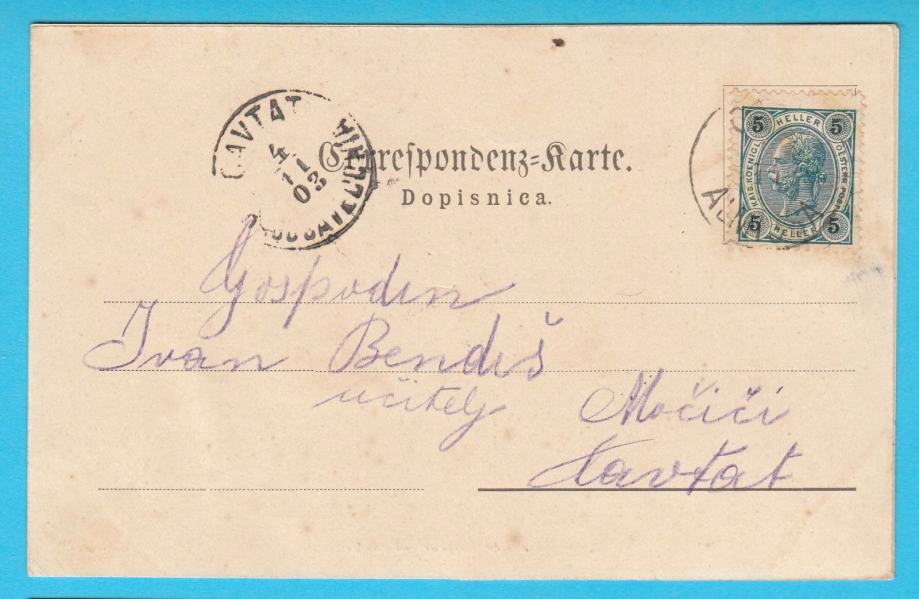 CAVTAT RAGUSAVECCHIA
4
11
03
Correspondenz=Karte.
Dopisnica.
5 HELLER 5
KAIS. KOENIGL. OESTERR. POST
5 HELLER 5
Gospodin
Ivan Bendiš
učitelj
Močići
Cavtat